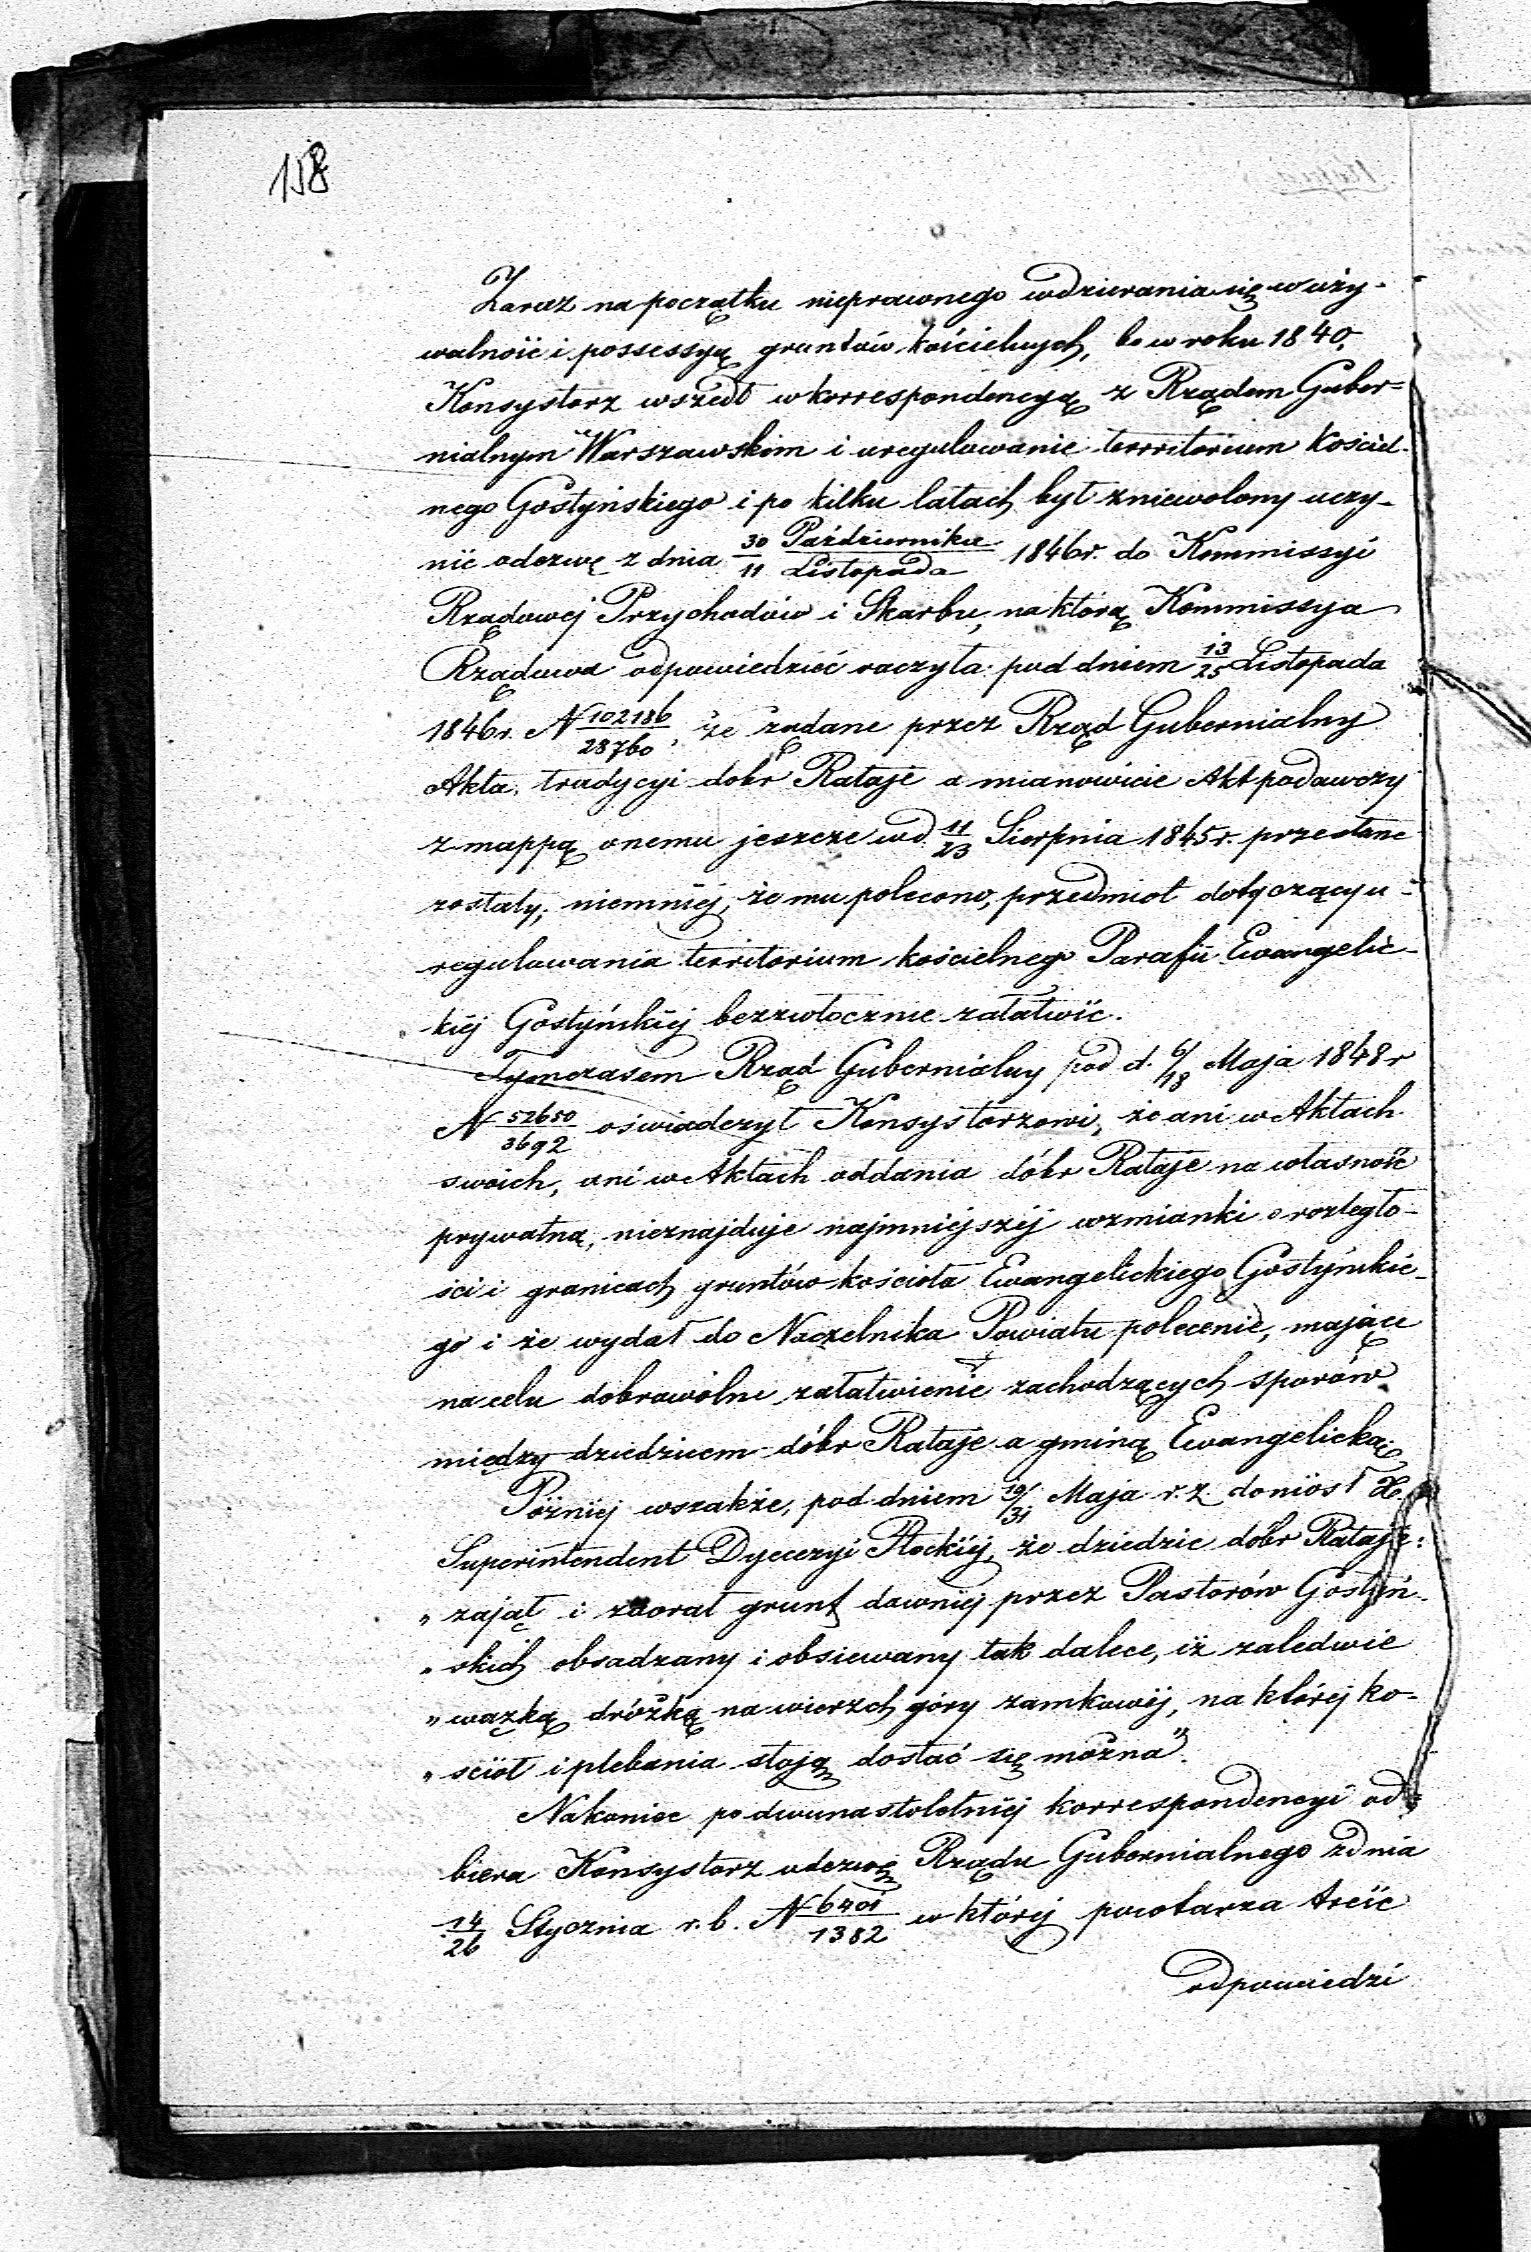 158
Zaraz na początku nieprawnego wdzierania się w uży-
walność i possessyą gruntów kościelnych, bo w roku 1840,
Konsystorz wszedł w korrespondencyą z Rządem Guber=
nialnym Warszawskim i uregulowanie territorium Kościel-
nego Gostyńskiego i po kilku latach był zniewolony uczy-
nić odezwę z dnia 30 Października/11 Listopada 1846r. do Kommissyi
Rządowej Przychodów i Skarbu, na którą Kommissya
Rządowa odpowiedzieć raczyła pod dniem 13/25 Listopada
1846r. N 102186/28760, że żądane przez Rząd Gubernialny
Akta, tradycyi dobr Rataje a mianowicie Akt podawczy
z mappą onemu jeszcze w d. 11/23 Sierpnia 1845r. przesłane
zostały, niemniej, że mu polecono, przedmiot dotyczący u-
regulowania territorium kościelnego Parafii Ewangelic-
kiej Gostyńskiej bezzwłocznie załatwić.
Tymczasem Rząd Gubernialny pod d. 6/18 Maja 1848r
N 52650/3692 oświadczył Konsystorzowi, że ani w Aktach
swoich, ani w Aktach oddania dóbr Rataje na własność
prywatną, nieznajduje najmniejszéj wzmianki o rozległo-
ści i granicach gruntów kościoła Ewangelickiego Gostyńskie-
go i że wydał do Naczelnika Powiatu polecenie, mające
na celu dobrowolne załatwienie zachodzących sporów
między dziedzicem dóbr Rataje a gminą Ewangelicką.
Późniéj wszakże, pod dniem 19/31 Maja r. z. doniósł X.
Superintendent Dyecezyi Płockiéj, że dziedzic dóbr Rataje:
„zajął i zaorał grunt dawniéj przez Pastorów Gostyń-
„skich obsadzany i obsiewany tak dalece, iż zaledwie
„wązką dróżką na wierzch góry zamkowéj, na któréj ko-
„ściół i plebania stoją dostać się można".
Nakoniec po dwunastoletniéj korrespondencyi od=
biera Konsystorz odezwę Rządu Gubernialnego z dnia
14/26 Stycznia r. b. N 6401/1382 w któréj powtarza treść
odpowiedzi